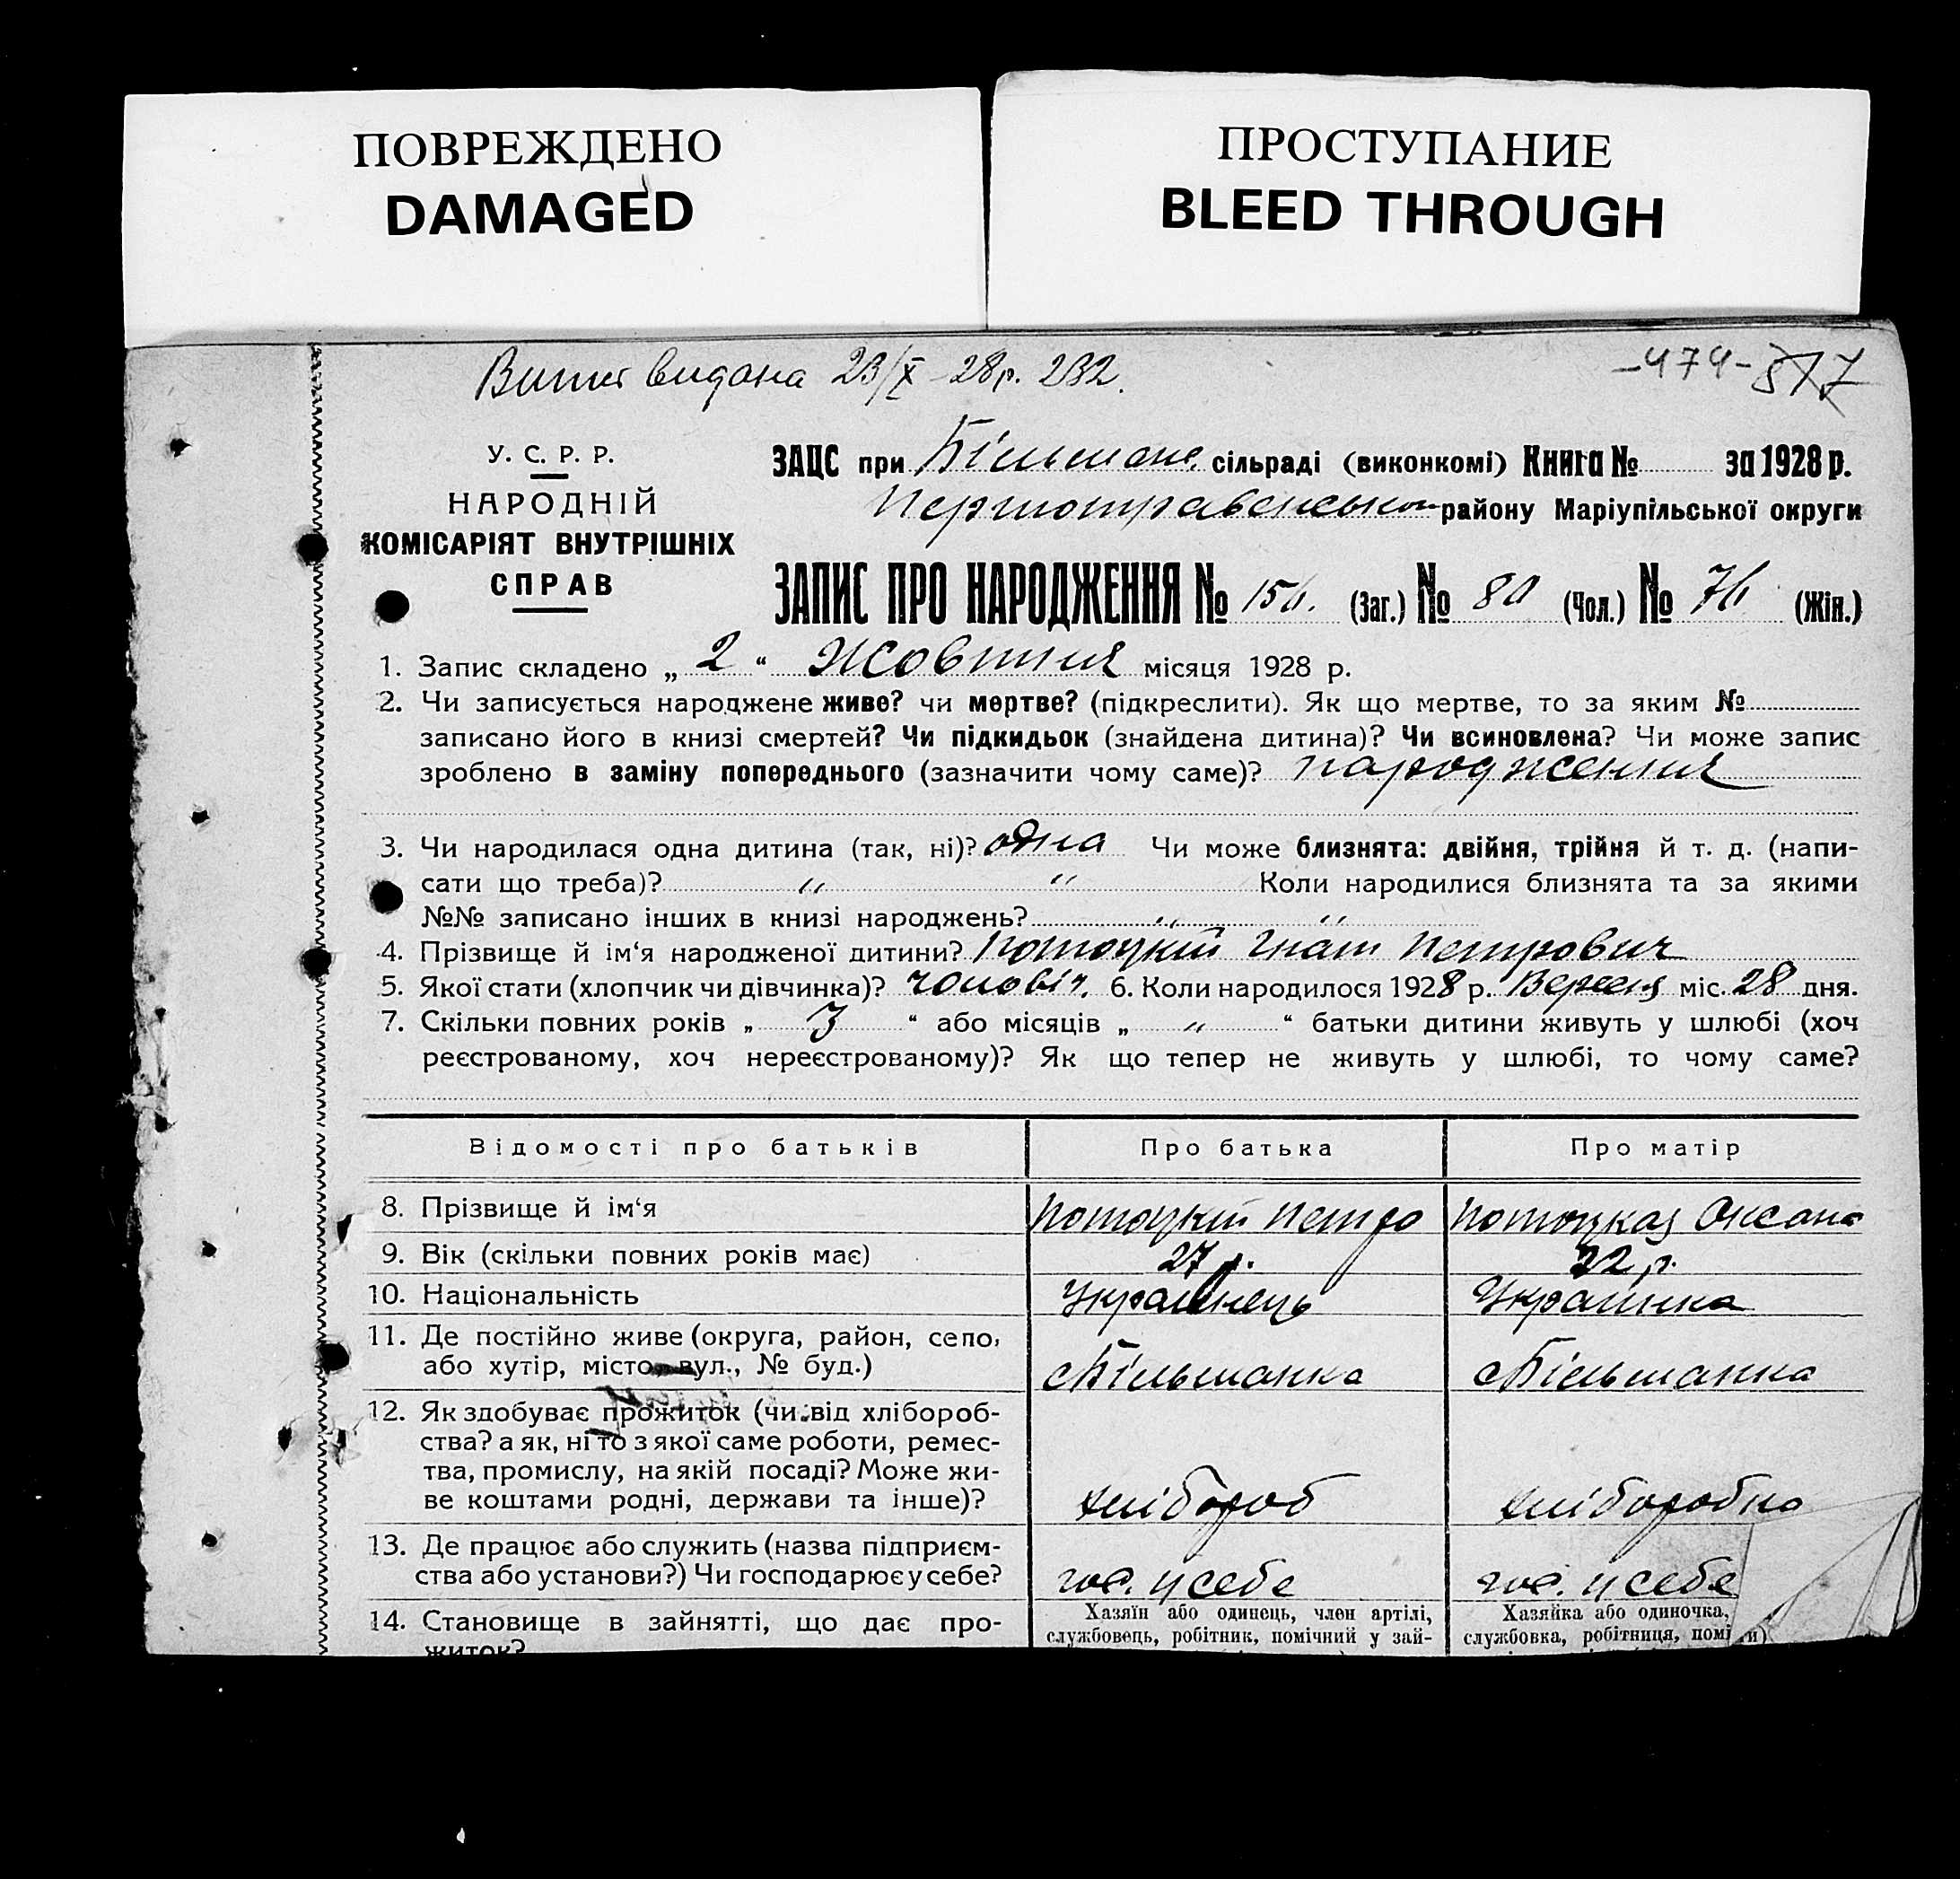 ПОВРЕЖДЕНО
DAMAGED
ПРОСТУПАНИЕ
BLEED THROUGH
видана 23/X-28р. 232.
-474-
У. С. Р. Р.
НАРОДНІЙ
КОМІСАРІЯТ ВНУТРІШНІХ
СПРАВ
ЗАЦС при Більшанс. сільраді (виконкомі) Книга № за 1928 р.
району Маріупільської округи
ЗАПИС ПРО НАРОДЖЕННЯ № 156. (Заг.) № 80 (Чол.) № 76 (Жін.)
1. Запис складено „ 2 “ Жовтня місяця 1928 р.
2. Чи записується народжене живе? чи мертве? (підкреслити). Як що мертве, то за яким №
записано його в книзі смертей? Чи підкидьок (знайдена дитина)? Чи всиновлена? Чи може запис
зроблено в заміну попереднього (зазначити чому саме)? народження
3. Чи народилася одна дитина (так, ні)? одна Чи може близнята: двійня, трійня й т. д. (напи-
сати що треба)? „ „ Коли народилися близнята та за якими
№№ записано інших в книзі народжень? „ „
4. Прізвище й ім‘я народженої дитини? Потоцкий Гнат Петрович
5. Якої стати (хлопчик чи дівчинка)? чоловіч. 6. Коли народилося 1928 р. Вересня міс. 28 дня.
7. Скільки повних років „ 3 “ або місяців „ „ “ батьки дитини живуть у шлюбі (хоч
реєстрованому, хоч нереєстрованому)? Як що тепер не живуть у шлюбі, то чому саме?
Відомості про батьків Про батька Про матір
8. Прізвище й ім‘я Потоцкий Петро Потоцкая Оксана
9. Вік (скільки повних років має) 27 р. 22 р.
10. Національність Українець Українка
11. Де постійно живе (округа, район, село,
або хутір, місто, вул., № буд.) с Більшанка с Більшанка
12. Як здобуває прожиток (чи від хлібороб-
ства? а як, ні то з якої саме роботи, ремес-
тва, промислу, на якій посаді? Може жи-
ве коштами родні, держави та інше)? хлібороб хліборобка
13. Де працює або служить (назва підприєм-
ства або установи?) Чи господарює у себе? гос. у себе гос. у себе
14. Становище в зайнятті, що дає про-
житок?
Хазяїн або одинець, член артілі,
службовець, робітник, помічний у зай-
Хазяйка або одиночка,
службовка, робітниця, помі